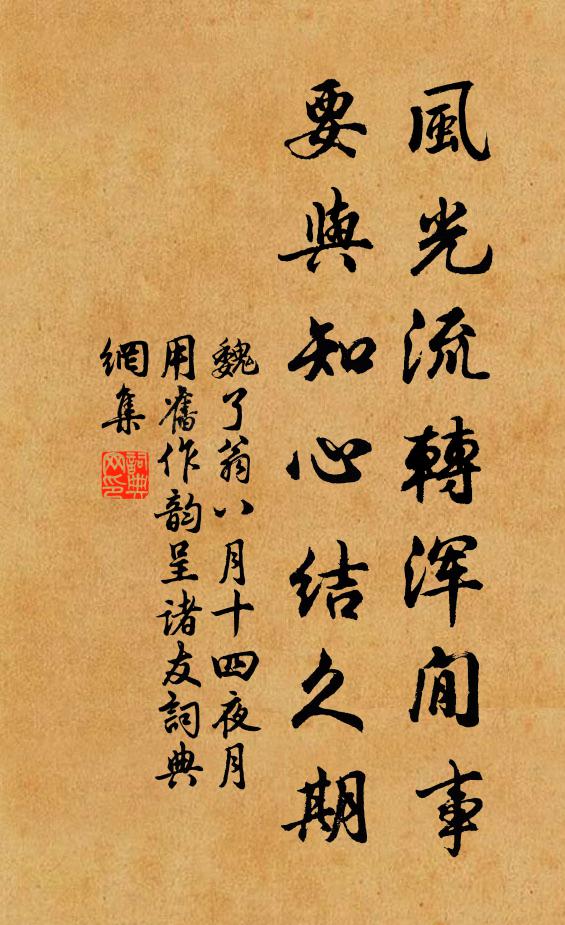 風光流轉渾閒事
要與知心結久期
魏了翁八月十四夜月
用舊作韵呈諸友詞典
網集
詞典
网印